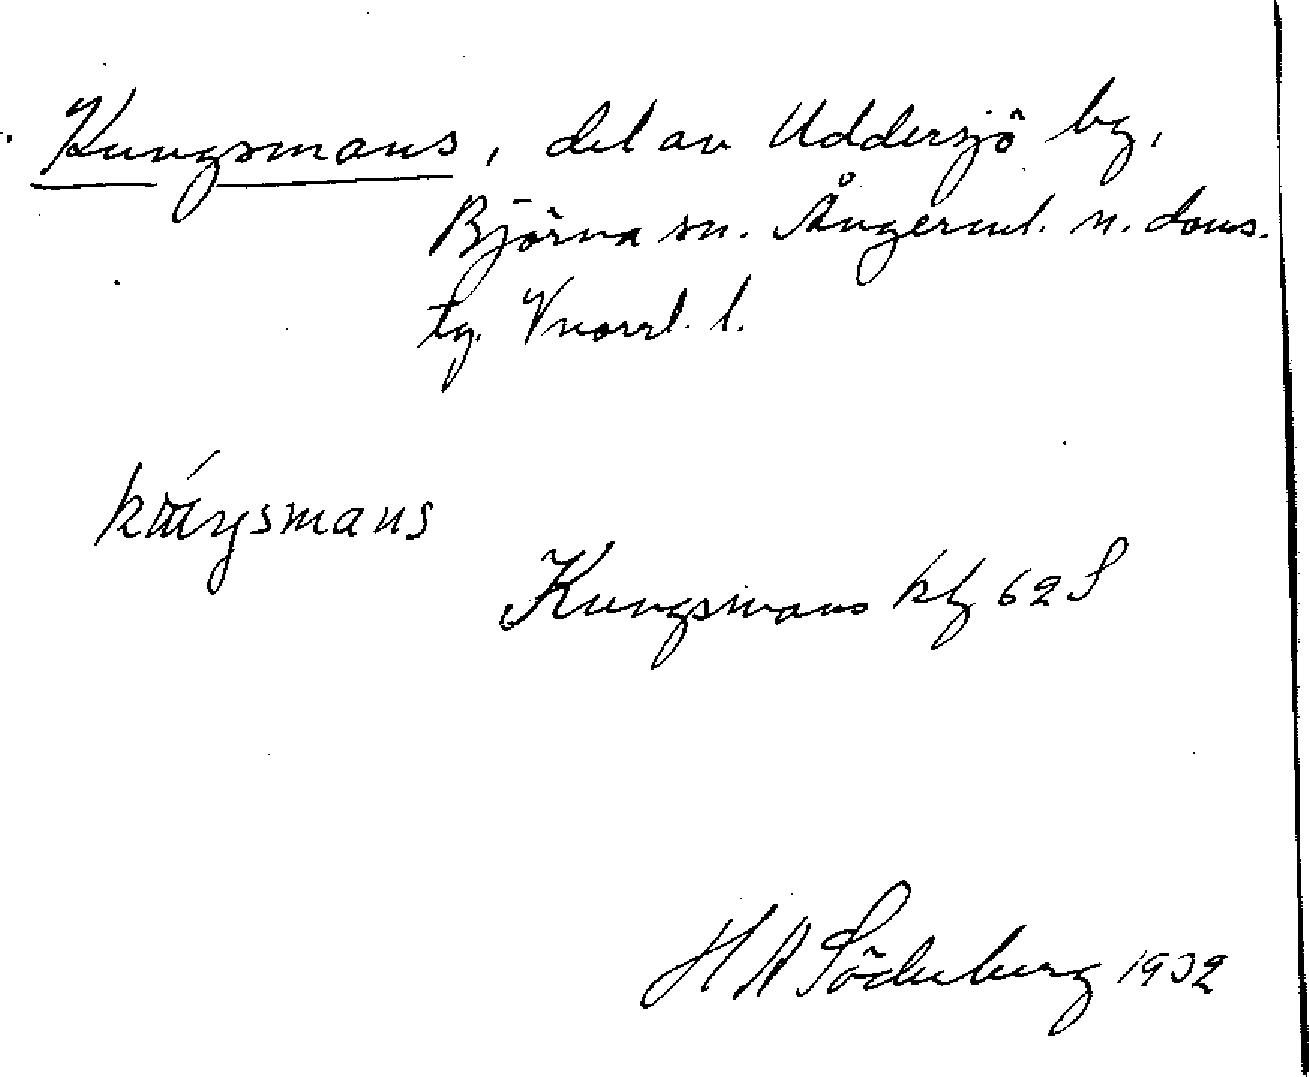 Kungsmans, del av Uddersjö by,
Björna sn. Ångerml. n. doms.
tg. Vnorrl. l.
Kungsmans kbl 62 S
H A Söderberg 1932